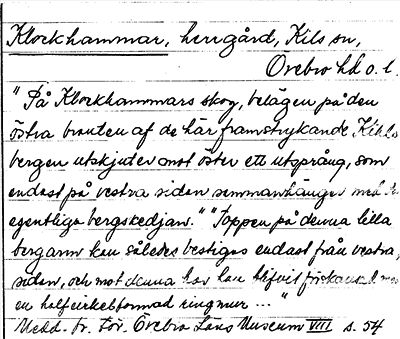 Klockhammar, herrgård, Kils sn,
Örebro hd o. l.
"På Klockhammars skog, belägen på den
östra branten af de här framstrykande Kils
bergen utskjuter mot öster ett utsprång, som
endast på vestra sidan sammanhänger med
egentliga bergskedjan." "Toppen på denna lilla
bergarm kan således bestigas endast från vestra
sidan, och mot denna har han blifvit förskansad med
en halfcirkelformad ringmur ..."
Medd. fr. För. Örebro Läns Museum VIII s. 54